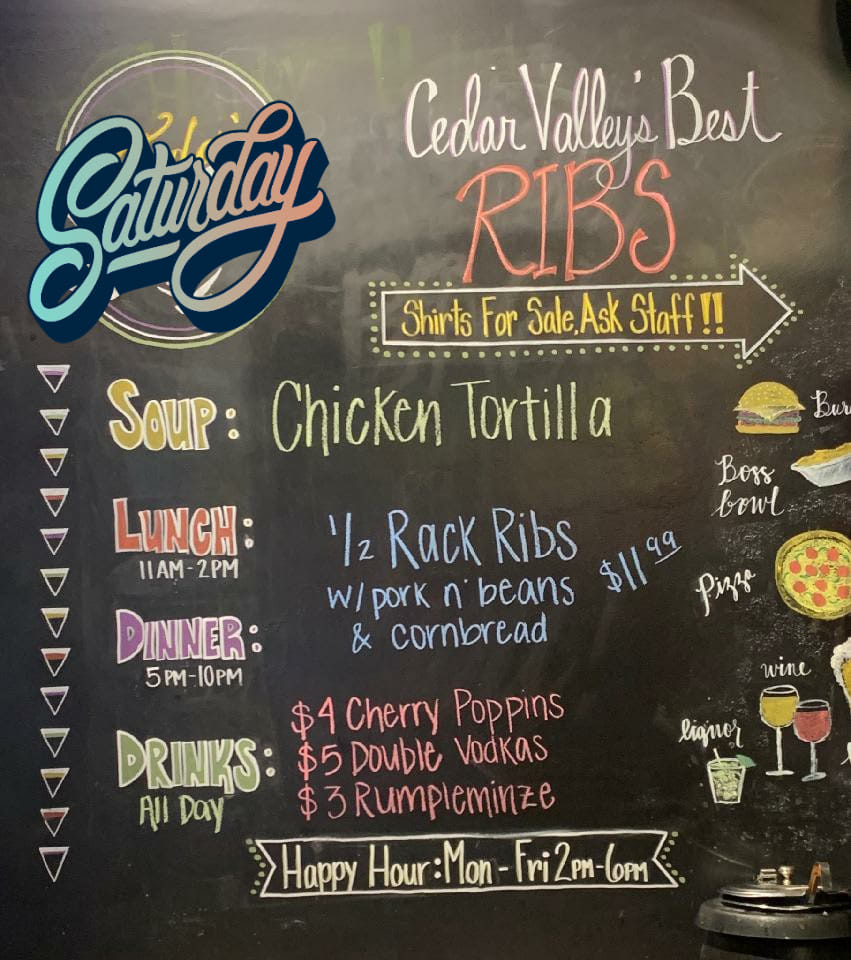 Saturday
Cedar Valley's Best
RIBS
Shirts For Sale, Ask Staff!!
SOUP: Chicken Tortilla
LUNCH:
11AM-2PM
1/2 Rack Ribs
w/pork n' beans
& cornbread
$11.99
DINNER:
5PM-10PM
DRINKS:
All Day
$4 Cherry Poppins
$5 Double Vodkas
$3 Rumpleminze
Happy Hour: Mon - Fri 2PM-6PM
Boss
bowl
Pizza
wine
liquor